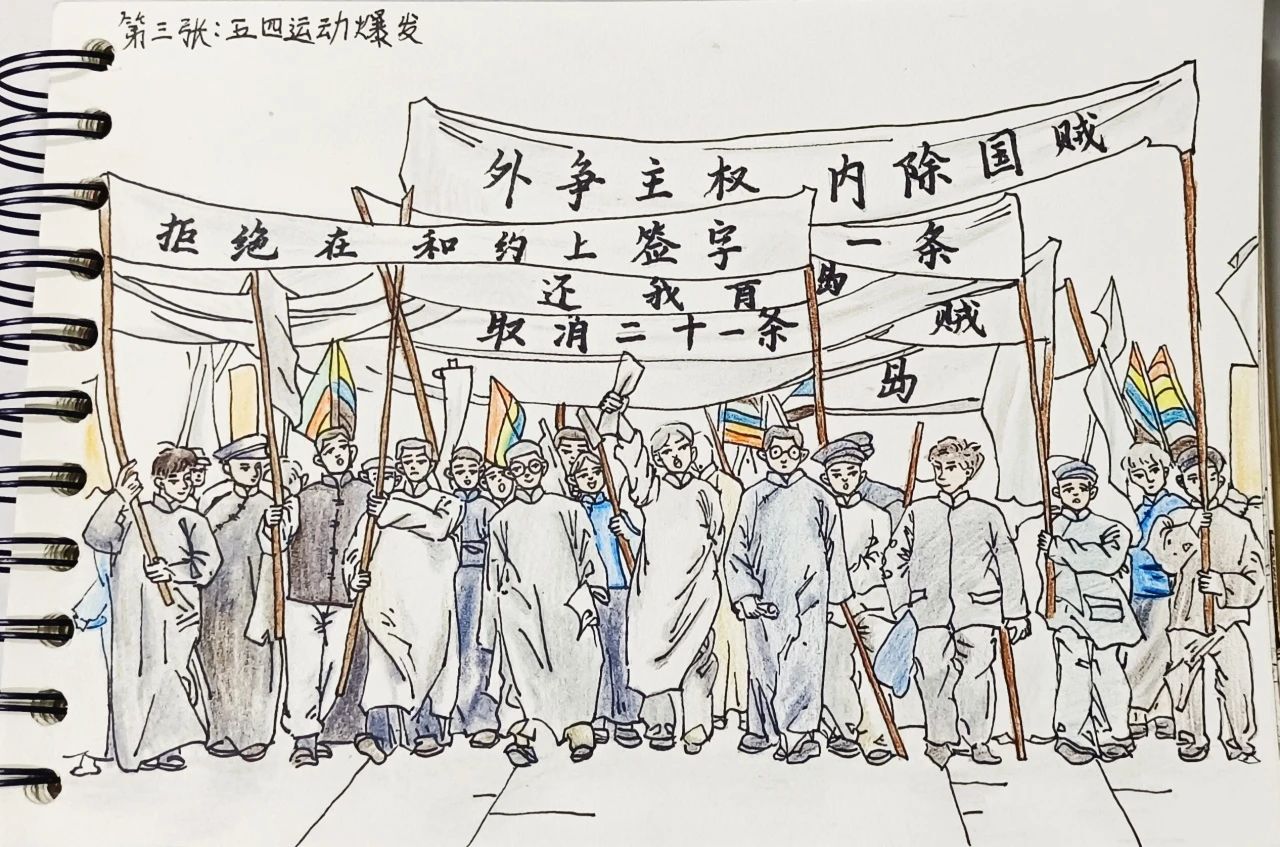 第三张:五四运动爆发
外争主权 内除国贼
拒绝在和约上签字
一条
还我 岛
取消二十一条
贼
岛